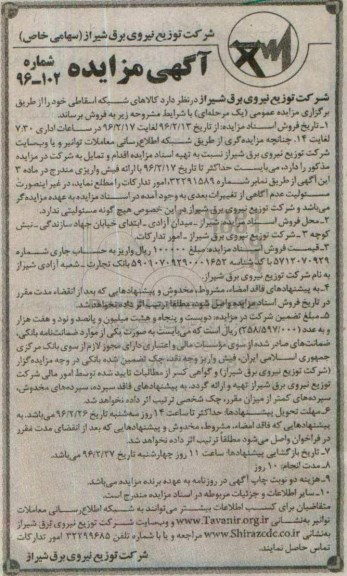 شرکت توزیع نیروی برق شیراز (سهامی خاص)
آگهی مزایده
شماره
۹۶-۱۰۲
شرکت توزیع نیروی برق شیراز در نظر دارد کالاهای شبکه اسقاطی خود را از طریق
برگزاری مزایده عمومی (یک مرحله‌ای) با شرایط مشروحه زیر به فروش برساند.
۱- تاریخ فروش اسناد مزایده: از تاریخ ۹۶/۲/۱۳ لغایت ۹۶/۲/۱۷ در ساعات اداری ۷:۳۰
لغایت ۱۴، چنانچه مزایده‌گری از طریق شبکه اطلاع‌رسانی معاملات توانیر و یا وب‌سایت
شرکت توزیع نیروی برق شیراز نسبت به تهیه اسناد مزایده اقدام و تمایل به شرکت در مزایده
مذکور را دارد، می‌بایست حداکثر تا تاریخ ۹۶/۲/۱۷ با ارائه فیش واریزی مندرج در ماده ۳
این آگهی از طریق نمابر شماره ۳۲۲۹۱۵۸۹ امور تدارکات را مطلع نماید، در غیر اینصورت
مسئولیت عدم آگاهی از تغییرات بعدی به وجود آمده در اسناد مزایده به عهده مزایده‌گر
می‌باشد و شرکت توزیع نیروی برق شیراز در این خصوص هیچ گونه مسئولیتی ندارد.
۲- محل فروش اسناد مزایده: شیراز - میدان آزادی - ابتدای خیابان جهاد سازندگی - نبش
کوچه ۳ - شرکت توزیع نیروی برق شیراز - امور تدارکات
۳- قیمت فروش اسناد مزایده: مبلغ ۱۰۰۰۰۰ ریال واریز به حساب جاری شماره
۵۷۱۲۰۷۰۹۲۹ با کد شناسه ۵۹۰۱۰۷۰۹۲۹۰۰۰۱۶۵۲ بانک تجارت - شعبه آزادی شیراز
به نام شرکت توزیع نیروی برق شیراز.
۴- به پیشنهادهای فاقد امضاء، مشروط، مخدوش و پیشنهادهایی که بعد از انقضاء مدت مقرر
در تاریخ فروش اسناد مزایده واصل شود، مطلقا ترتیب اثر داده نخواهد شد.
۵- مبلغ تضمین شرکت در مزایده، دویست و پنجاه و هشت میلیون و پانصد و نود و هفت هزار
و به عدد (۲۵۸/۵۹۷/۰۰۰) ریال است که می‌بایست به صورت یکی از موارد ضمانت‌نامه بانکی،
ضمانت‌های صادر شده از سوی مؤسسات مالی و اعتباری دارای مجوز لازم از سوی بانک مرکزی
جمهوری اسلامی ایران، فیش واریز وجه نقد، چک تضمین شده بانکی در وجه مزایده‌گزار
(شرکت توزیع نیروی برق شیراز) و گواهی کسر از مطالبات تایید شده توسط امور مالی شرکت
توزیع نیروی برق شیراز تهیه و ارائه گردد. به پیشنهادهای فاقد سپرده، سپرده‌های مخدوش،
سپرده‌های کمتر از میزان مقرر، چک شخصی ترتیب اثر داده نخواهد شد.
۶- مهلت تحویل پیشنهادها: حداکثر تا ساعت ۱۴ روز سه‌شنبه تاریخ ۹۶/۲/۲۶ می‌باشد. به
پیشنهادهایی که فاقد امضاء، مشروط، مخدوش و پیشنهادهایی که بعد از انقضاء مدت مقرر
در فراخوان واصل می‌شود مطلقا ترتیب اثر داده نخواهد شد.
۷- تاریخ بازگشایی پیشنهادها: ساعت ۱۱ روز چهارشنبه تاریخ ۹۶/۲/۲۷ می‌باشد.
۸- مدت انجام: ۱۰ روز
۹- هزینه دو نوبت چاپ آگهی در روزنامه به عهده برنده مزایده می‌باشد.
۱۰- سایر اطلاعات و جزئیات مربوطه در اسناد مزایده مندرج است.
متقاضیان برای کسب اطلاعات بیشتر می‌توانند به شبکه اطلاع‌رسانی معاملات
توانیر به‌نشانی www.Tavanir.org.ir و وب‌سایت شرکت توزیع نیروی برق شیراز
به‌نشانی www.Shirazedc.co.ir مراجعه و یا با شماره تلفن ۳۲۲۹۹۶۸۵ امور تدارکات
تماس حاصل نمایند.
شرکت توزیع نیروی برق شیراز